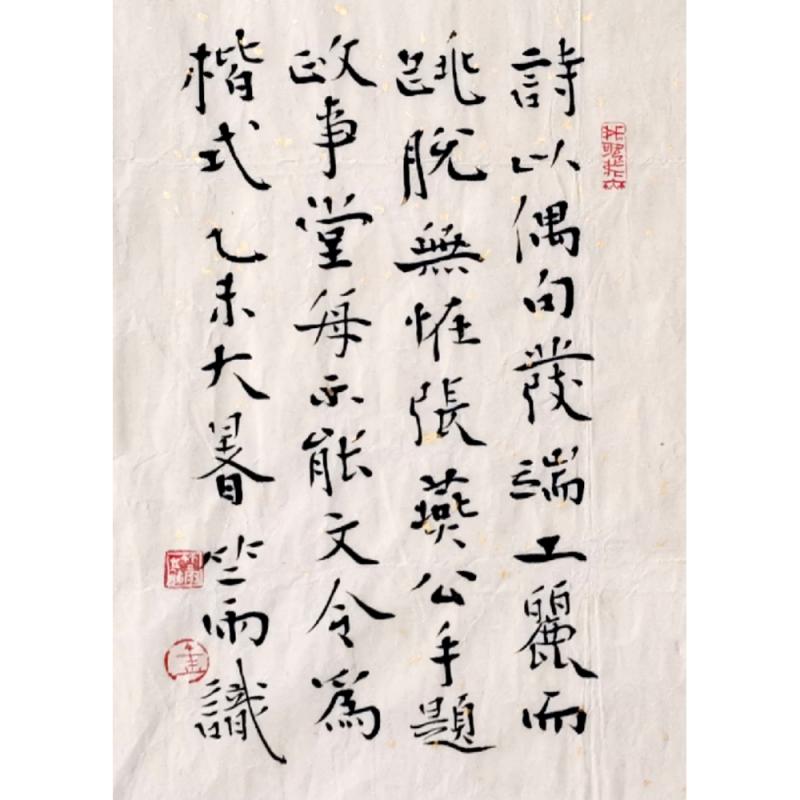 詩以偶句發端工麗而
跳脫無怪張燕公手題
政事堂每示能文令為
楷式乙未大暑竺雨識